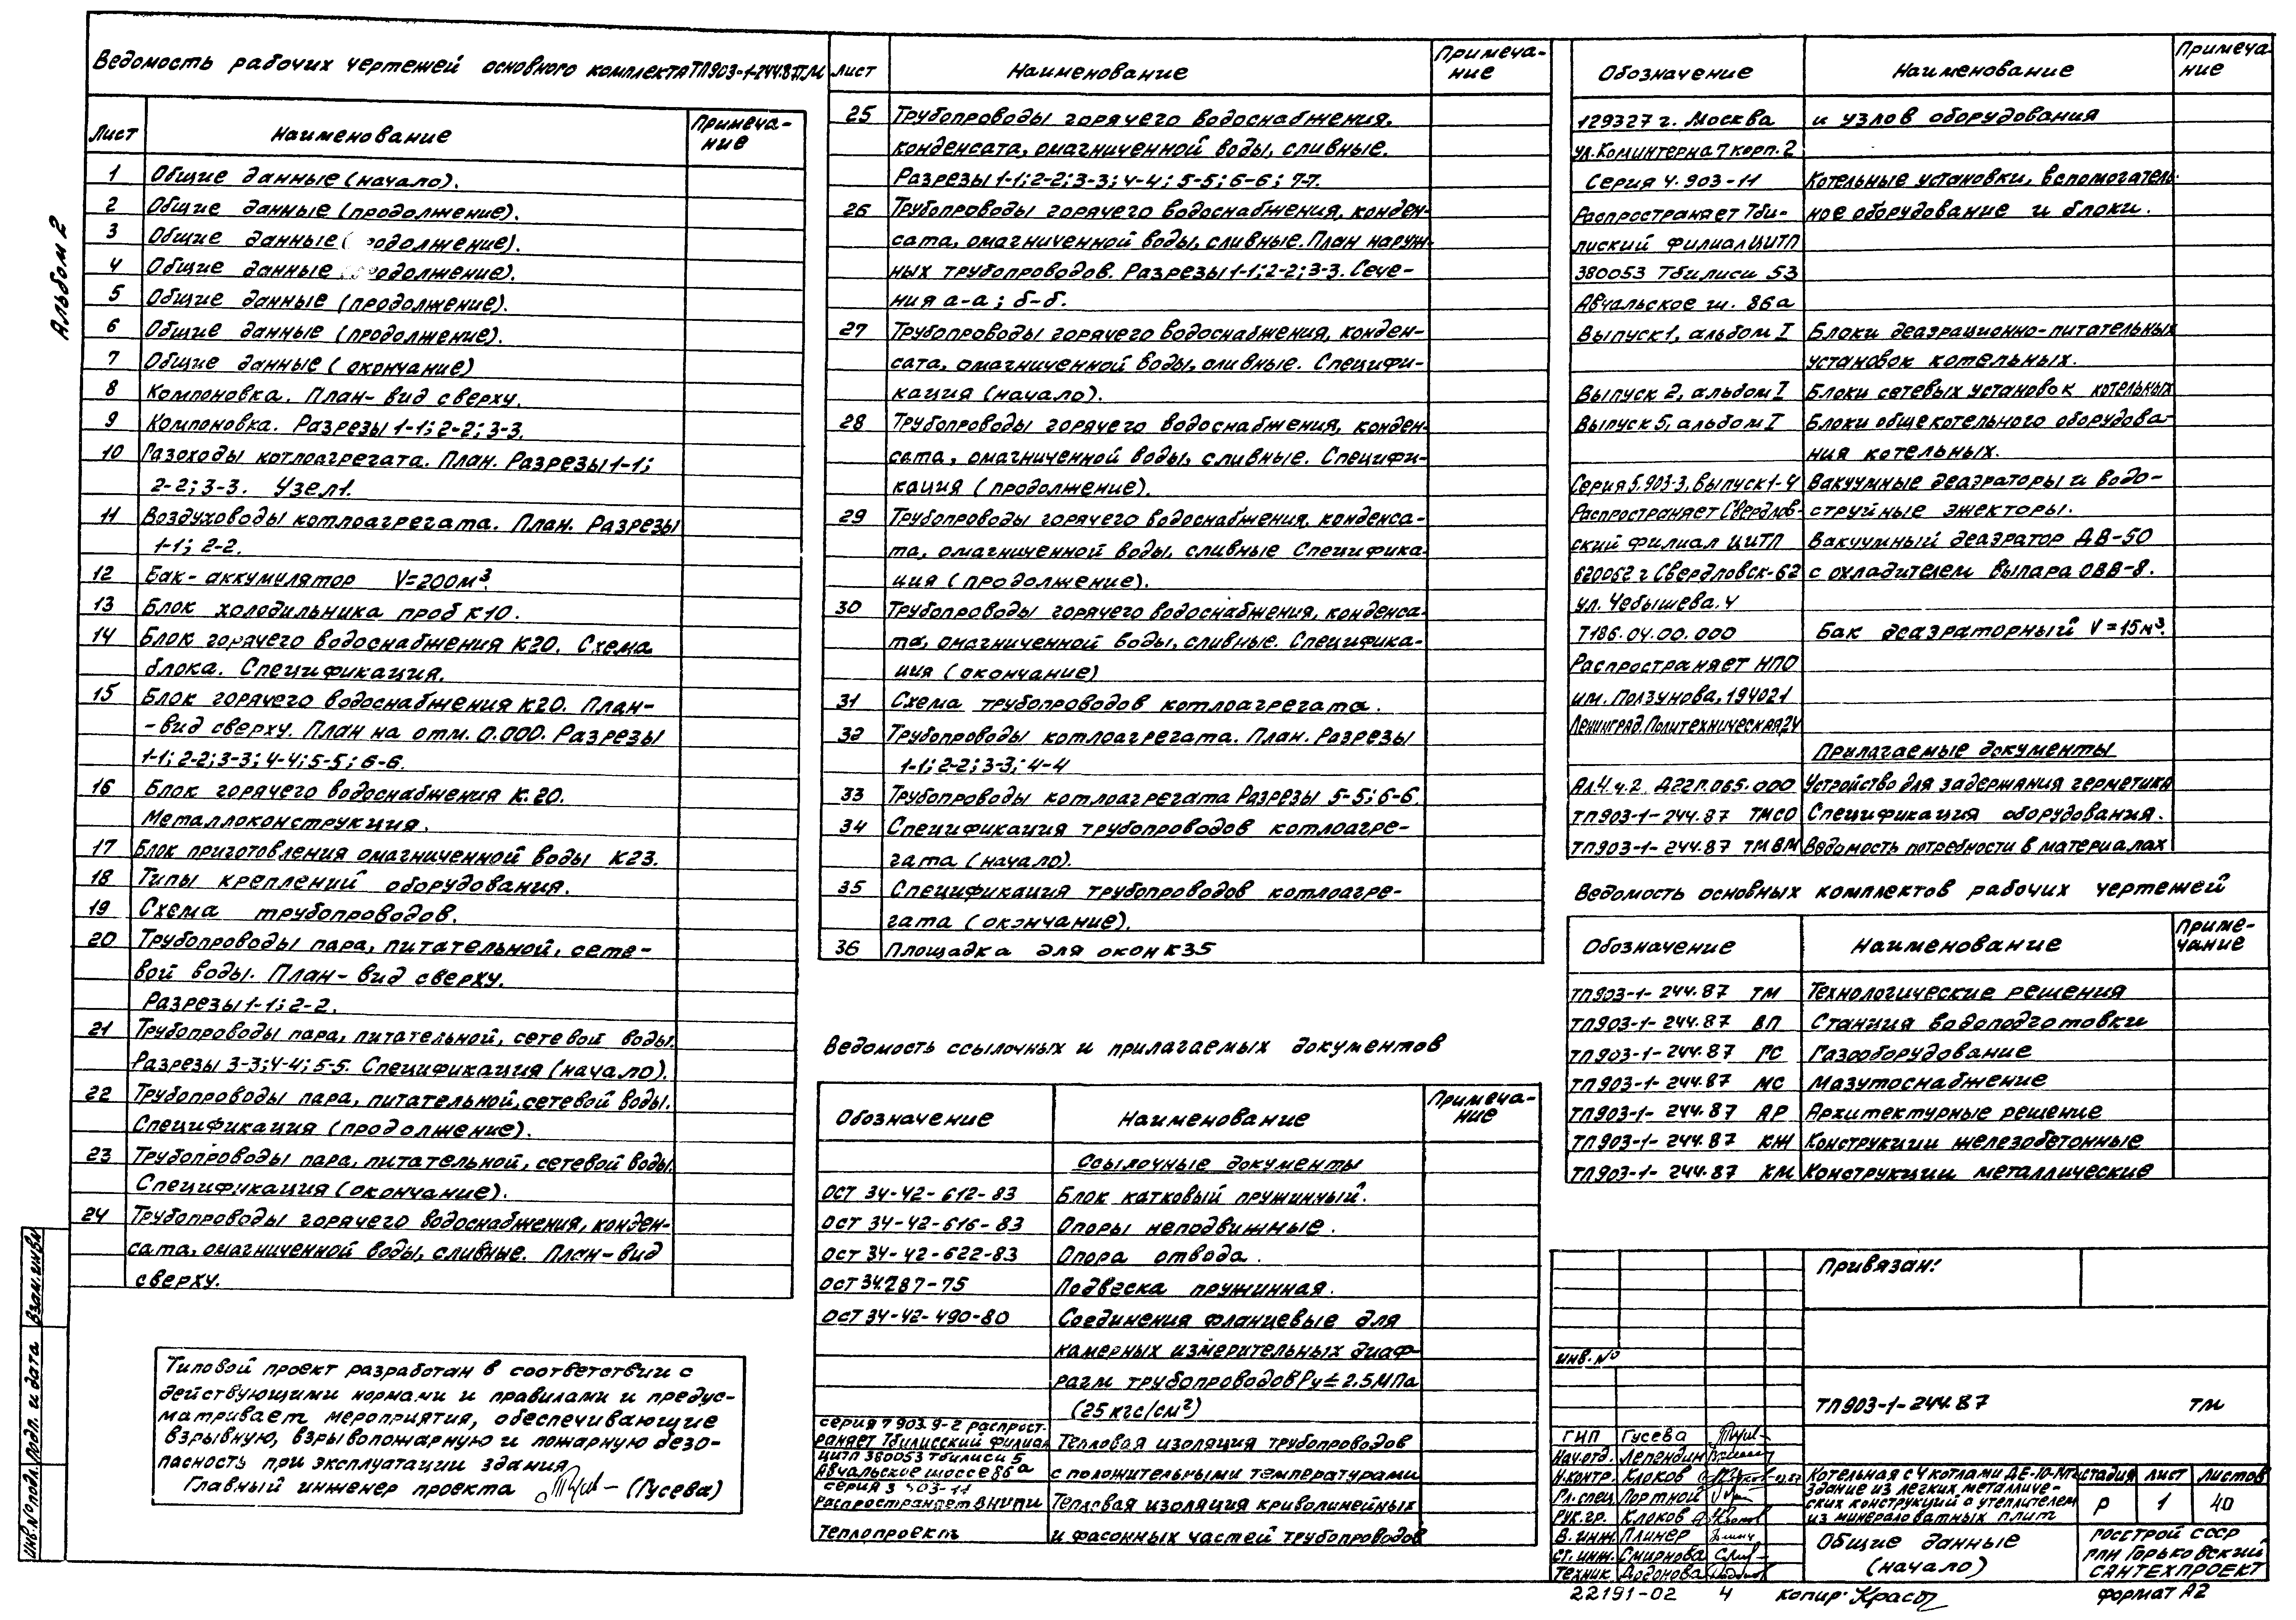 Альбом 2
Ведомость рабочих чертежей основного комплекта ТП903-1-244.87ТМ
Лист Наименование Примеча-
ние
1 Общие данные (начало).
2 Общие данные (продолжение).
3 Общие данные ( родолжение).
4 Общие данные родолжение).
5 Общие данные (продолжение).
6 Общие данные (продолжение).
7 Общие данные (окончание)
8 Компоновка. План-вид сверху.
9 Компоновка. Разрезы 1-1; 2-2; 3-3.
10 Газоходы котлоагрегата. План. Разрезы 1-1;
2-2; 3-3. Узел 1.
11 Воздуховоды котлоагрегата. План. Разрезы
1-1; 2-2.
12 Бак-аккумулятор V=200м³.
13 Блок холодильника проб К10.
14 Блок горячего водоснабжения К20. Схема
блока. Спецификация.
15 Блок горячего водоснабжения К20. План-
-вид сверху. План на отм. 0.000. Разрезы
1-1; 2-2; 3-3; 4-4; 5-5; 6-6.
16 Блок горячего водоснабжения К.20.
Металлоконструкция.
17 Блок приготовления омагниченной воды К23.
18 Типы креплений оборудования.
19 Схема трубопроводов.
20 Трубопроводы пара, питательной, сете-
вой воды. План-вид сверху.
Разрезы 1-1; 2-2.
21 Трубопроводы пара, питательной, сетевой воды.
Разрезы 3-3; 4-4; 5-5. Спецификация (начало).
22 Трубопроводы пара, питательной, сетевой воды.
Спецификация (продолжение).
23 Трубопроводы пара, питательной, сетевой воды.
Спецификация (окончание).
24 Трубопроводы горячего водоснабжения, конден-
сата, омагниченной воды, сливные. План-вид
сверху.
Типовой проект разработан в соответствии с
действующими нормами и правилами и предус-
матривает мероприятия, обеспечивающие
взрывную, взрывопожарную и пожарную безо-
пасность при эксплуатации здания
Главный инженер проекта (Гусева)
Инв.№ подл. Подп. и дата Взам.инв№
Лист Наименование Примеча-
ние
25 Трубопроводы горячего водоснабжения,
конденсата, омагниченной воды, сливные.
Разрезы 1-1; 2-2; 3-3; 4-4; 5-5; 6-6; 7-7.
26 Трубопроводы горячего водоснабжения, конден-
сата, омагниченной воды, сливные. План наруж-
ных трубопроводов. Разрезы 1-1; 2-2; 3-3. Сече-
ния а-а; б-б.
27 Трубопроводы горячего водоснабжения, конден-
сата, омагниченной воды, сливные. Специфи-
кация (начало).
28 Трубопроводы горячего водоснабжения, конден-
сата, омагниченной воды, сливные. Специфи-
кация (продолжение).
29 Трубопроводы горячего водоснабжения, конденса-
та, омагниченной воды, сливные Специфика-
ция (продолжение).
30 Трубопроводы горячего водоснабжения, конденса-
та, омагниченной воды, сливные. Специфика-
ция (окончание)
31 Схема трубопроводов котлоагрегата.
32 Трубопроводы котлоагрегата. План. Разрезы
1-1; 2-2; 3-3; 4-4
33 Трубопроводы котлоагрегата Разрезы 5-5; 6-6.
34 Спецификация трубопроводов котлоагре-
гата (начало).
35 Спецификация трубопроводов котлоагре-
гата (окончание).
36 Площадка для окон К35
Ведомость ссылочных и прилагаемых документов
Обозначение Наименование Примеча-
ние
Ссылочные документы
ОСТ 34-42-612-83 Блок катковый пружинный.
ОСТ 34-42-616-83 Опоры неподвижные.
ОСТ 34-42-622-83 Опора отвода.
ОСТ 34.287-75 Подвеска пружинная.
ОСТ 34-42-490-80 Соединения фланцевые для
камерных измерительных диаф-
рагм трубопроводов Ру≤2.5МПа
(25 кгс/см²)
серия 7 903.9-2 распрост-
раняет Тбилисский филиал Тепловая изоляция трубопроводов
ЦИТП 380053 Тбилиси 5
Авчальское шоссе 86а с положительными температурами
серия 3 903-11
распространяет ВНИПИ Тепловая изоляция криволинейных
Теплопроект и фасонных частей трубопроводов
Обозначение Наименование Примеча
ние
129327 г. Москва и узлов оборудования
ул. Коминтерна 7 корп. 2
Серия 4.903-11 Котельные установки, вспомогатель-
Распространяет Тби- ное оборудование и блоки.
лиский филиал ЦИТП
380053 Тбилиси 53
Авчальское ш. 86а
Выпуск 1, альбом I Блоки деаэрационно-питательных
установок котельных.
Выпуск 2, альбом I Блоки сетевых установок котельных
Выпуск 5, альбом I Блоки общекотельного оборудова-
ния котельных.
Серия 5.903-3, выпуск 1-4 Вакуумные деаэраторы и водо-
Распространяет Свердлов- струйные эжекторы.
ский филиал ЦИТП Вакуумный деаэратор ДВ-50
620062 г Свердловск-62 с охладителем выпара ОВВ-8.
ул. Чебышева. 4
Т186.04.00.000 Бак деаэраторный V=15м³.
Распространяет НПО
им. Ползунова, 194021
Ленинград. Политехническая,24
Прилагаемые документы
Ал.4 ч.2. Д22П.065.000 Устройство для задержания герметика
ТП903-1-244.87 ТМСО Спецификация оборудования.
ТП903-1-244.87 ТМВМ Ведомость потребности в материалах
Ведомость основных комплектов рабочих чертежей
Обозначение Наименование Приме-
чание
ТП903-1-244.87 ТМ Технологические решения
ТП903-1-244.87 ВП Станция водоподготовки
ТП903-1-244.87 ГС Газооборудование
ТП903-1-244.87 МС Мазутоснабжение
ТП903-1-244.87 АР Архитектурные решение
ТП903-1-244.87 КЖ Конструкции железобетонные
ТП903-1-244.87 КМ Конструкции металлические
Привязан:
инв.№
ТП903-1-244.87 ТМ
ГИП Гусева
Нач.отд. Лепендин
Н.контр. Клоков
Гл.спец. Портной
Рук.гр. Клоков
В.инж. Плинер
ст.инж. Смирнова
Техник Додонова
Котельная с 4 котлами ДЕ-10-14
Здание из легких металличе-
ских конструкций с утеплителем
из минераловатных плит
стадия лист листов
Р 1 40
Общие данные
(начало)
Росстрой СССР
ГПИ Горьковский
САНТЕХПРОЕКТ
22191-02 4 Копир: формат А2